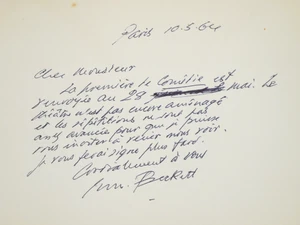 Paris 10.5.64
Cher Monsieur
La première de Comédie est
renvoyée au 28 mai. Le
théâtre n'est pas encore aménagé
et les répétitions ne sont pas
assez avancées pour que je puisse
vous inviter à venir nous voir.
Je vous ferai signe plus tard.
Cordialement à vous
Sam. Beckett